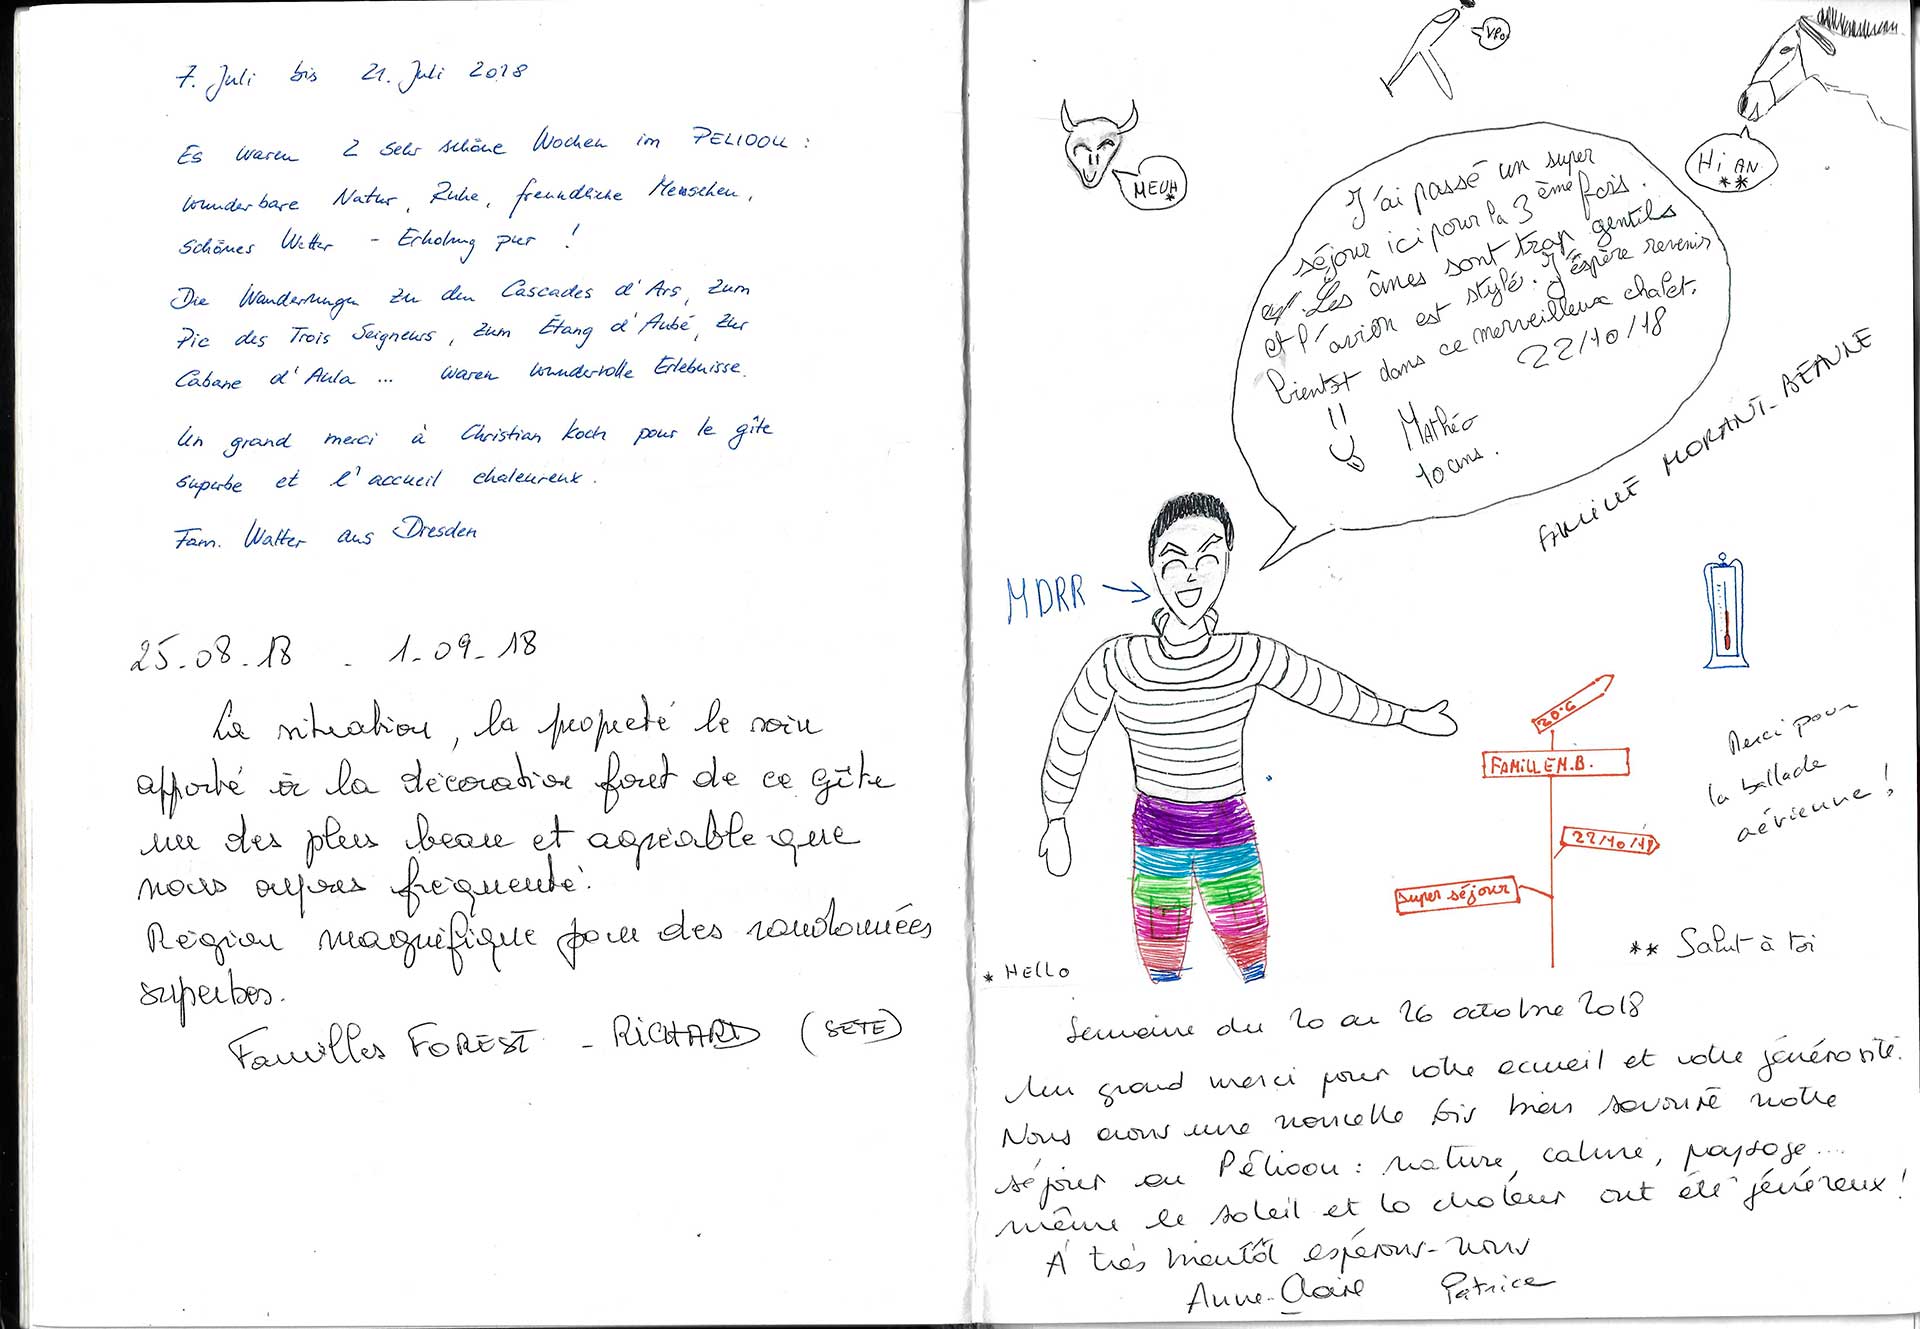 7. Juli bis 21. Juli 2018
Es waren 2 sehr schöne Wochen im PELIOOU :
wunderbare Natur, Ruhe, freundliche Menschen,
schönes Wetter - Erholung pur !
Die Wanderungen zu den Cascades d'Ars, zum
Pic des Trois Seigneurs, zum Étang d'Aubé, zur
Cabane d'Aula ... waren wundervolle Erlebnisse.
Un grand merci à Christian Koch pour le gîte
superbe et l'accueil chaleureux.
Fam. Walter aus Dresden
25-08-18 - 1-09-18
La situation, la propreté le soin
apporté à la décoration font de ce gîte
un des plus beau et agréable que
nous ayons fréquenté.
Région magnifique pour des randonnées
superbes.
Familles FOREST - RICHARD (SETE)
MEUH *
Hi AN
**
J'ai passé un super
séjour ici pour la 3ème fois.
Les ânes sont trop gentils
et l'avion est stylé. J'éspère revenir
bientôt dans ce merveilleux chalet.
22/10/18
Mathéo
10 ans.
FAMILLE MORANT-BEAUNE
MDRR
20°C
FAMILLE M.B.
22/10/18
super séjour
Merci pour
la ballade
aérienne !
* HELLO
** Salut à toi
Semaine du 20 au 26 octobre 2018
Un grand merci pour votre accueil et votre générosité.
Nous avons une nouvelle fois bien savouré notre
séjour au Pélioou : nature, calme, paysage....
même le soleil et la chaleur ont été généreux !
À très bientôt espérons-nous
Anne-Claire Patrice